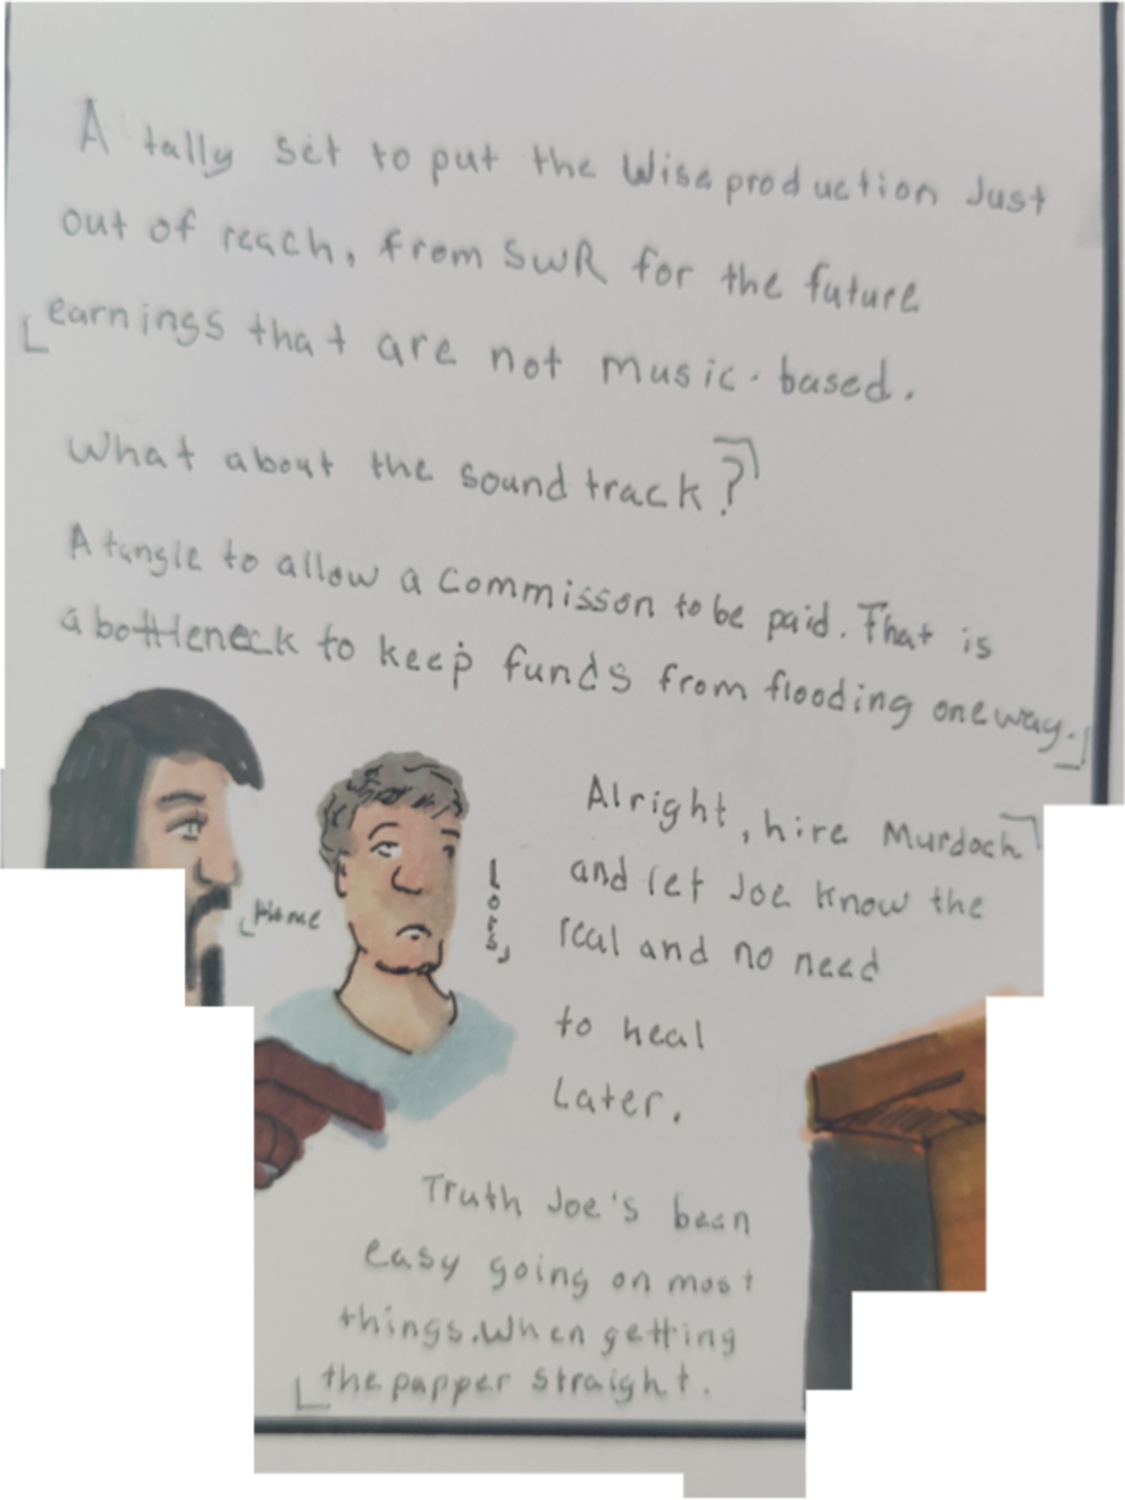 A tally set to put the Wise production Just
out of reach, from SWR for the future
earnings that are not music-based.
What about the sound track?
A tangle to allow a Commisson to be paid. That is
a bottleneck to keep funds from flooding one way.
Alright, hire Murdoch
and let Joe know the
real and no need
to heal
Later.
Home
Truth Joe's bean
easy going on most
things. When getting
the papper straight.